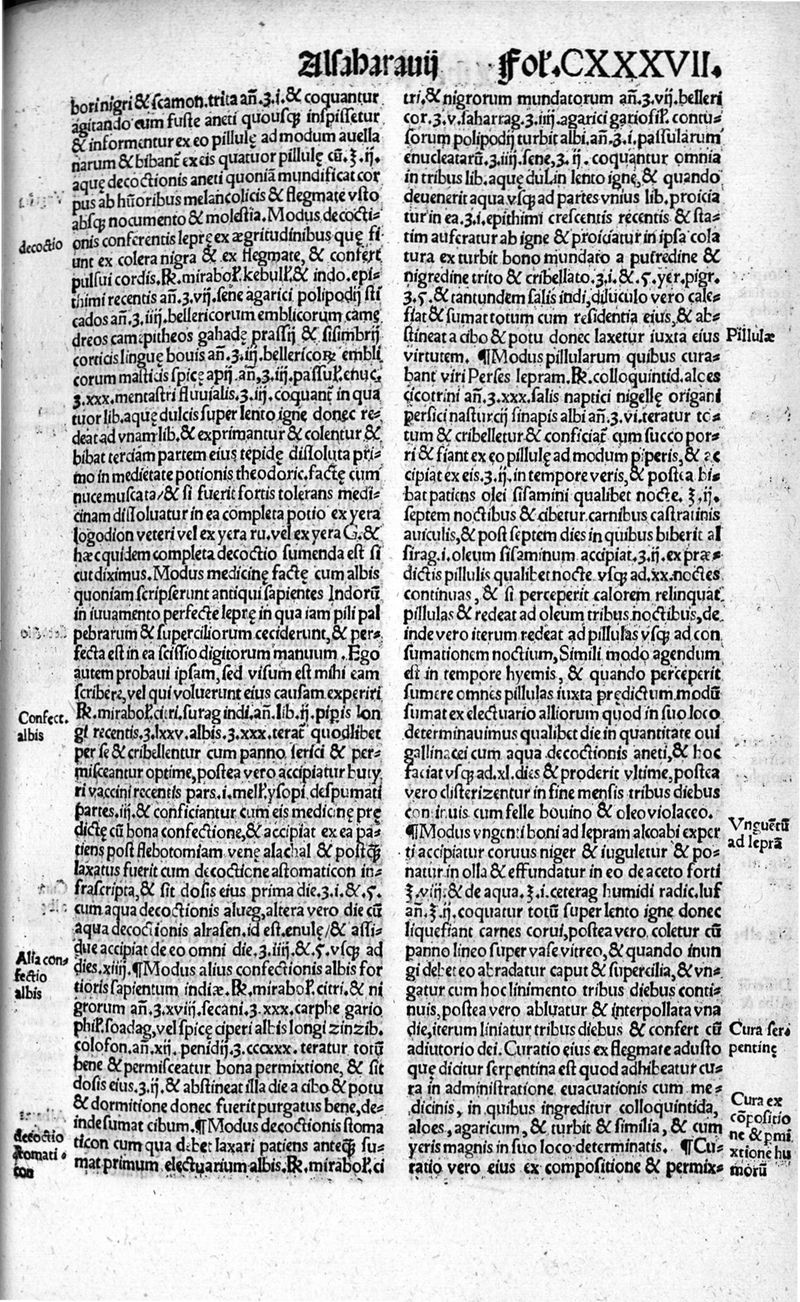 Alsaharauij Fol. CXXXVII.
bori nigri & scamon. trita añ. ʒ. i. & coquantur
agitando cum fuste aneti quousqꝫ inspissetur
& informentur ex eo pillulę ad modum auella
narum & bibant ex eis quatuor pillulę cũ. ℥. ij.
aquę decoctionis aneti quoniã mundificat cor
pus ab hũoribus melancolicis & flegmate vsto
absqꝫ nocumento & molestia. Modus decocti-
decoctio
onis conferentis lepre ex ægritudinibus quę fi
unt ex colera nigra & ex flegmate, & confert
pulsui cordis. ℞. mirabol. kebul. & indo. epi-
thimi recentis añ. ʒ. vij. sene agarici polipodij sti
cados añ. ʒ. iiij. bellericorum emblicorum camę
dreos camepitheos gahadę prassij & sisimbrij
corticis linguę bouis añ. ʒ. iij. bellericoꝝ embli
corum masticis spicę aprij. añ. ʒ. iij. passul. enuc.
ʒ. xxx. mentastri fluuialis. ʒ. iij. coquant in qua
tuor lib. aquę dulcis super lento igne donec re-
deat ad vnam lib. & exprimantur & colentur &
bibat terciam partem eius tepidę dissoluta pri-
mo in medietate potionis theodoric. factę cum
nucemuscata / & si fuerit fortis tolerans medi-
cinam dissoluatur in ea completa potio ex yera
logodion veteri vel ex yera ru. vel ex yera G. &
hæc quidem completa decoctio sumenda est si
cut diximus. Modus medicinę factę cum albis
quoniam scripserunt antiqui sapientes Indorũ
in iuuamento perfectę leprę in qua iam pili pal
pebrarum & superciliorum ceciderunt, & per-
fecta est in ea scissio digitorum manuum. Ego
autem probaui ipsam, sed visum est mihi eam
scribere, vel qui voluerunt eius causam experiri
Confect.
albis
℞. mirabol. citri. surag indi. añ. lib. ij. pipis lon
gi recentis. ʒ. lxxv. albis. ʒ. xxx. terat quodlibet
per se & cribellentur cum panno serici & per-
misceantur optime, postea vero accipiatur buty
ri vaccini recentis pars. i. mell. ysopi despumati
partes. iij. & conficiantur cum eis medicinę prę
dictę cũ bona confectione, & accipiat ex ea pa-
tiens post flebotomiam venę alachal & postqꝫ
laxatus fuerit cum decoctione astomaticon in-
frascripta, & sit dosis eius prima die. ʒ. i. & ɕ.
cum aqua decoctionis alueg, altera vero die cũ
aqua decoctionis alrasen. id est. enulę / & assi-
due accipiat de eo omni die. ʒ. iiij. & ɕ. vsqꝫ ad
Alia con-
fectio
albis
dies. xiiij. ¶Modus alius confectionis albis for
tioris sapientum indiæ. ℞. mirabol. citri. & ni
grorum añ. ʒ. xviij. secani. ʒ. xxx. carphe gario
phil. soadag, vel spicę ciperi albis longi zinzib.
colofon. añ. xij. penidij. ʒ. cccxxx. teratur totũ
bene & permisceatur bona permixtione, & sit
dosis eius. ʒ. ij. & abstineat illa die a cibo & potu
& dormitione donec fuerit purgatus bene, de-
decoctio
stomati-
con
inde sumat cibum. ¶Modus decoctionis stoma
ticon cum qua debet laxari patiens anteqꝫ su-
mat primum electuarium albis. ℞. mirabol. ci
tri. & nigrorum mundatorum añ. ʒ. vij. belleri
cor. ʒ. v. saharrag. ʒ. iiij. agarici gariofil. contu-
sorum polipodij turbit albi. añ. ʒ. i. passularum
enucleatarũ. ʒ. iiij. sene, ʒ. ij. coquantur omnia
in tribus lib. aquę dul. in lento igne, & quando
deuenerit aqua vsqꝫ ad partes vnius lib. proicia
tur in ea. ʒ. i. epithimi crescentis recentis & sta-
tim auferatur ab igne & proiciatur in ipsa cola
tura ex turbit bono mundato a putredine &
nigredine trito & cribellato. ʒ. i. & ɕ. yer. pigr.
ʒ. ɕ. & tantundem salis indi, diluculo vero cale-
fiat & sumat totum cum residentia eius, & ab-
Pillulæ
stineat a cibo & potu donec laxetur iuxta eius
virtutem. ¶Modus pillularum quibus cura-
bant viri Perses lepram. ℞. colloquintid. aloes
cicotrini añ. ʒ. xxx. salis naptici nigellę origani
persici nasturcij sinapis albi añ. ʒ. vi. teratur to-
tum & cribelletur & conficiat cum succo por-
ri & fiant ex eo pillulę ad modum piperis, & ac
cipiat ex eis. ʒ. ij. in tempore veris, & postea bi-
bat patiens olei sisamini qualibet nocte. ℥. ij.
septem noctibus & cibetur carnibus castratinis
auiculis, & post septem dies in quibus biberit al
sirag. i. oleum sisaminum accipiat. ʒ. ij. ex præ-
dictis pillulis qualibet nocte vsqꝫ ad. xx. noctes
continuas, & si perceperit calorem relinquat
pillulas & redeat ad oleum tribus noctibus, de
inde vero iterum redeat ad pillulas vsqꝫ ad con
sumationem noctium, Simili modo agendum
est in tempore hyemis, & quando perceperit
sumere omnes pillulas iuxta prędictum modũ
sumat ex electuario alliorum quod in suo loco
determinauimus qualibet die in quantitate oui
gallinacei cum aqua decoctionis aneti, & hoc
faciat vsqꝫ ad. xl. dies & proderit vltime, postea
vero clisterizentur in fine mensis tribus diebus
continuis cum felle bouino & oleo violaceo.
Vnguẽtũ
ad leprã
¶Modus vngenti boni ad lepram alcoabi exper
ti accipiatur coruus niger & iuguletur & po-
natur in olla & effundatur in eo de aceto forti
℥. viij. & de aqua. ℥. i. ceterag humidi radic. luf
añ. ℥. ij. coquatur totũ super lento igne donec
liquefiant carnes corui, postea vero coletur cũ
panno lineo super vase vitreo, & quando inun
gi debet eo abradatur caput & supercilia, & vn-
gatur cum hoc linimento tribus diebus conti-
nuis, postea vero abluatur & interpollata vna
Cura ser-
pentinę
die, iterum liniatur tribus diebus & confert cũ
adiutorio dei. Curatio eius ex flegmate adusto
que dicitur serpentina est quod adhibeatur cu-
ra in administratione euacuationis cum me-
Cura ex
cõpositio
ne & pmi
xtione hu
morũ
dicinis, in quibus ingreditur colloquintida,
aloes, agaricum, & turbit & similia, & cum
yeris magnis in suo loco determinatis. ¶Cu-
ratio vero eius ex compositione & permix-